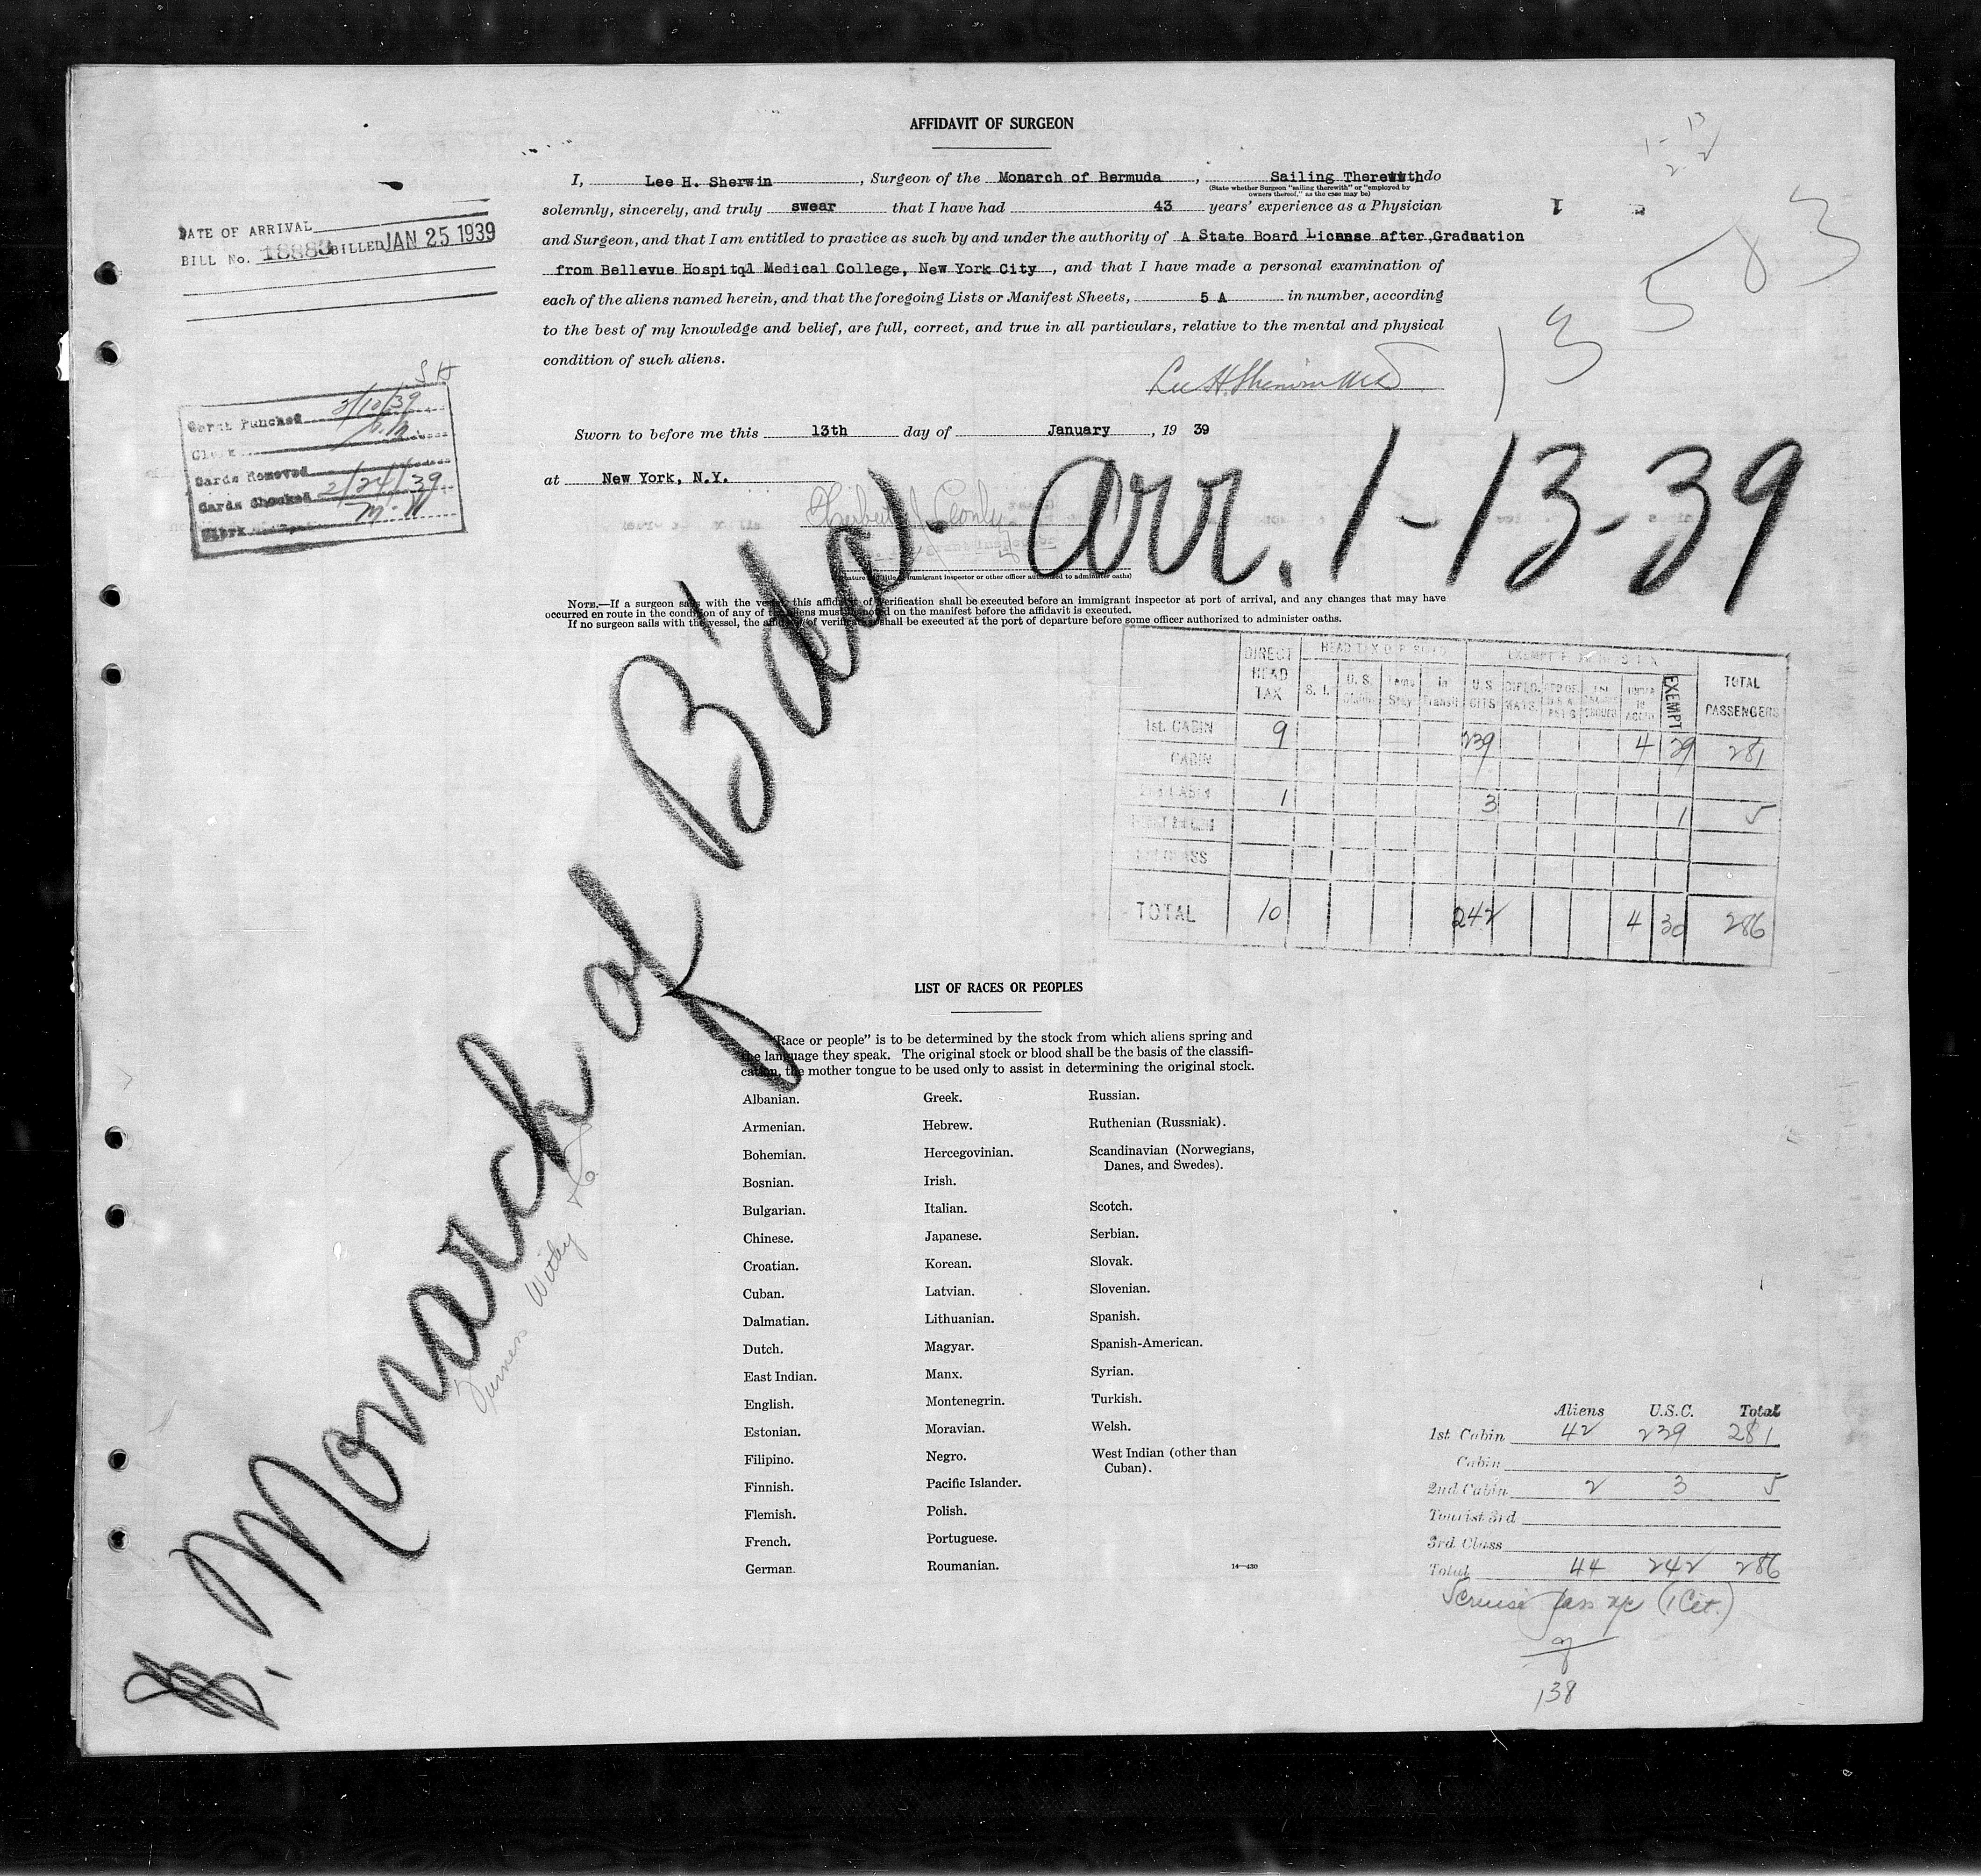 AFFIDAVIT OF SURGEON
I, Lee H. Sherwin, Surgeon of the Monarch of Bermuda, Sailing Therewith do
(State whether Surgeon "sailing therewith" or "employed by
owners thereof," as the case may be)
solemnly, sincerely, and truly swear that I have had 43 years' experience as a Physician
and Surgeon, and that I am entitled to practice as such by and under the authority of A State Board License after, Graduation
from Bellevue Hospitql Medical College, New York City, and that I have made a personal examination of
each of the aliens named herein, and that the foregoing Lists or Manifest Sheets, 5 A in number, according
to the best of my knowledge and belief, are full, correct, and true in all particulars, relative to the mental and physical
condition of such aliens.
Lee H. Sherwin M.D
Sworn to before me this 13th day of January, 19 39
at New York, N.Y.
immigrant inspector or other officer authorized to administer oaths)
NOTE.—If a surgeon sails with the vessel, this affidavit of verification shall be executed before an immigrant inspector at port of arrival, and any changes that may have
occurred en route in the condition of any of the aliens must be noted on the manifest before the affidavit is executed.
If no surgeon sails with the vessel, the affidavit of verification shall be executed at the port of departure before some officer authorized to administer oaths.
DATE OF ARRIVAL
BILL No. 18883 BILLED JAN 25 1939
S H
Cards Punched 2/10/39
Clerk
Cards Removed
Cards Checked 2/24/39
Clerk M.W
1-13
2 2
13583
Monarch of B'da - arr. 1-13-39
Furness Withy & Co.
DIRECT HEAD TAX
S. I.
U. S.
Temp Stay
In Transit
U.S. CITS
DIPLO.MATS.
EXEMPT
TOTAL PASSENGERS
1st. CABIN 9 239 4 29 281
CABIN
2nd CABIN 1 3 1 5
CLASS
TOTAL 10 242 4 30 286
LIST OF RACES OR PEOPLES
"Race or people" is to be determined by the stock from which aliens spring and
the language they speak. The original stock or blood shall be the basis of the classifi-
cation, the mother tongue to be used only to assist in determining the original stock.
Albanian.
Armenian.
Bohemian.
Bosnian.
Bulgarian.
Chinese.
Croatian.
Cuban.
Dalmatian.
Dutch.
East Indian.
English.
Estonian.
Filipino.
Finnish.
Flemish.
French.
German.
Greek.
Hebrew.
Hercegovinian.
Irish.
Italian.
Japanese.
Korean.
Latvian.
Lithuanian.
Magyar.
Manx.
Montenegrin.
Moravian.
Negro.
Pacific Islander.
Polish.
Portuguese.
Roumanian.
Russian.
Ruthenian (Russniak).
Scandinavian (Norwegians,
Danes, and Swedes).
Scotch.
Serbian.
Slovak.
Slovenian.
Spanish.
Spanish-American.
Syrian.
Turkish.
Welsh.
West Indian (other than
Cuban).
14—430
Aliens U.S.C. Total
1st Cabin 42 239 281
Cabin
2nd Cabin 2 3 5
Tourist 3rd
3rd Class
Total 44 242 286
(1 Cit.)
138